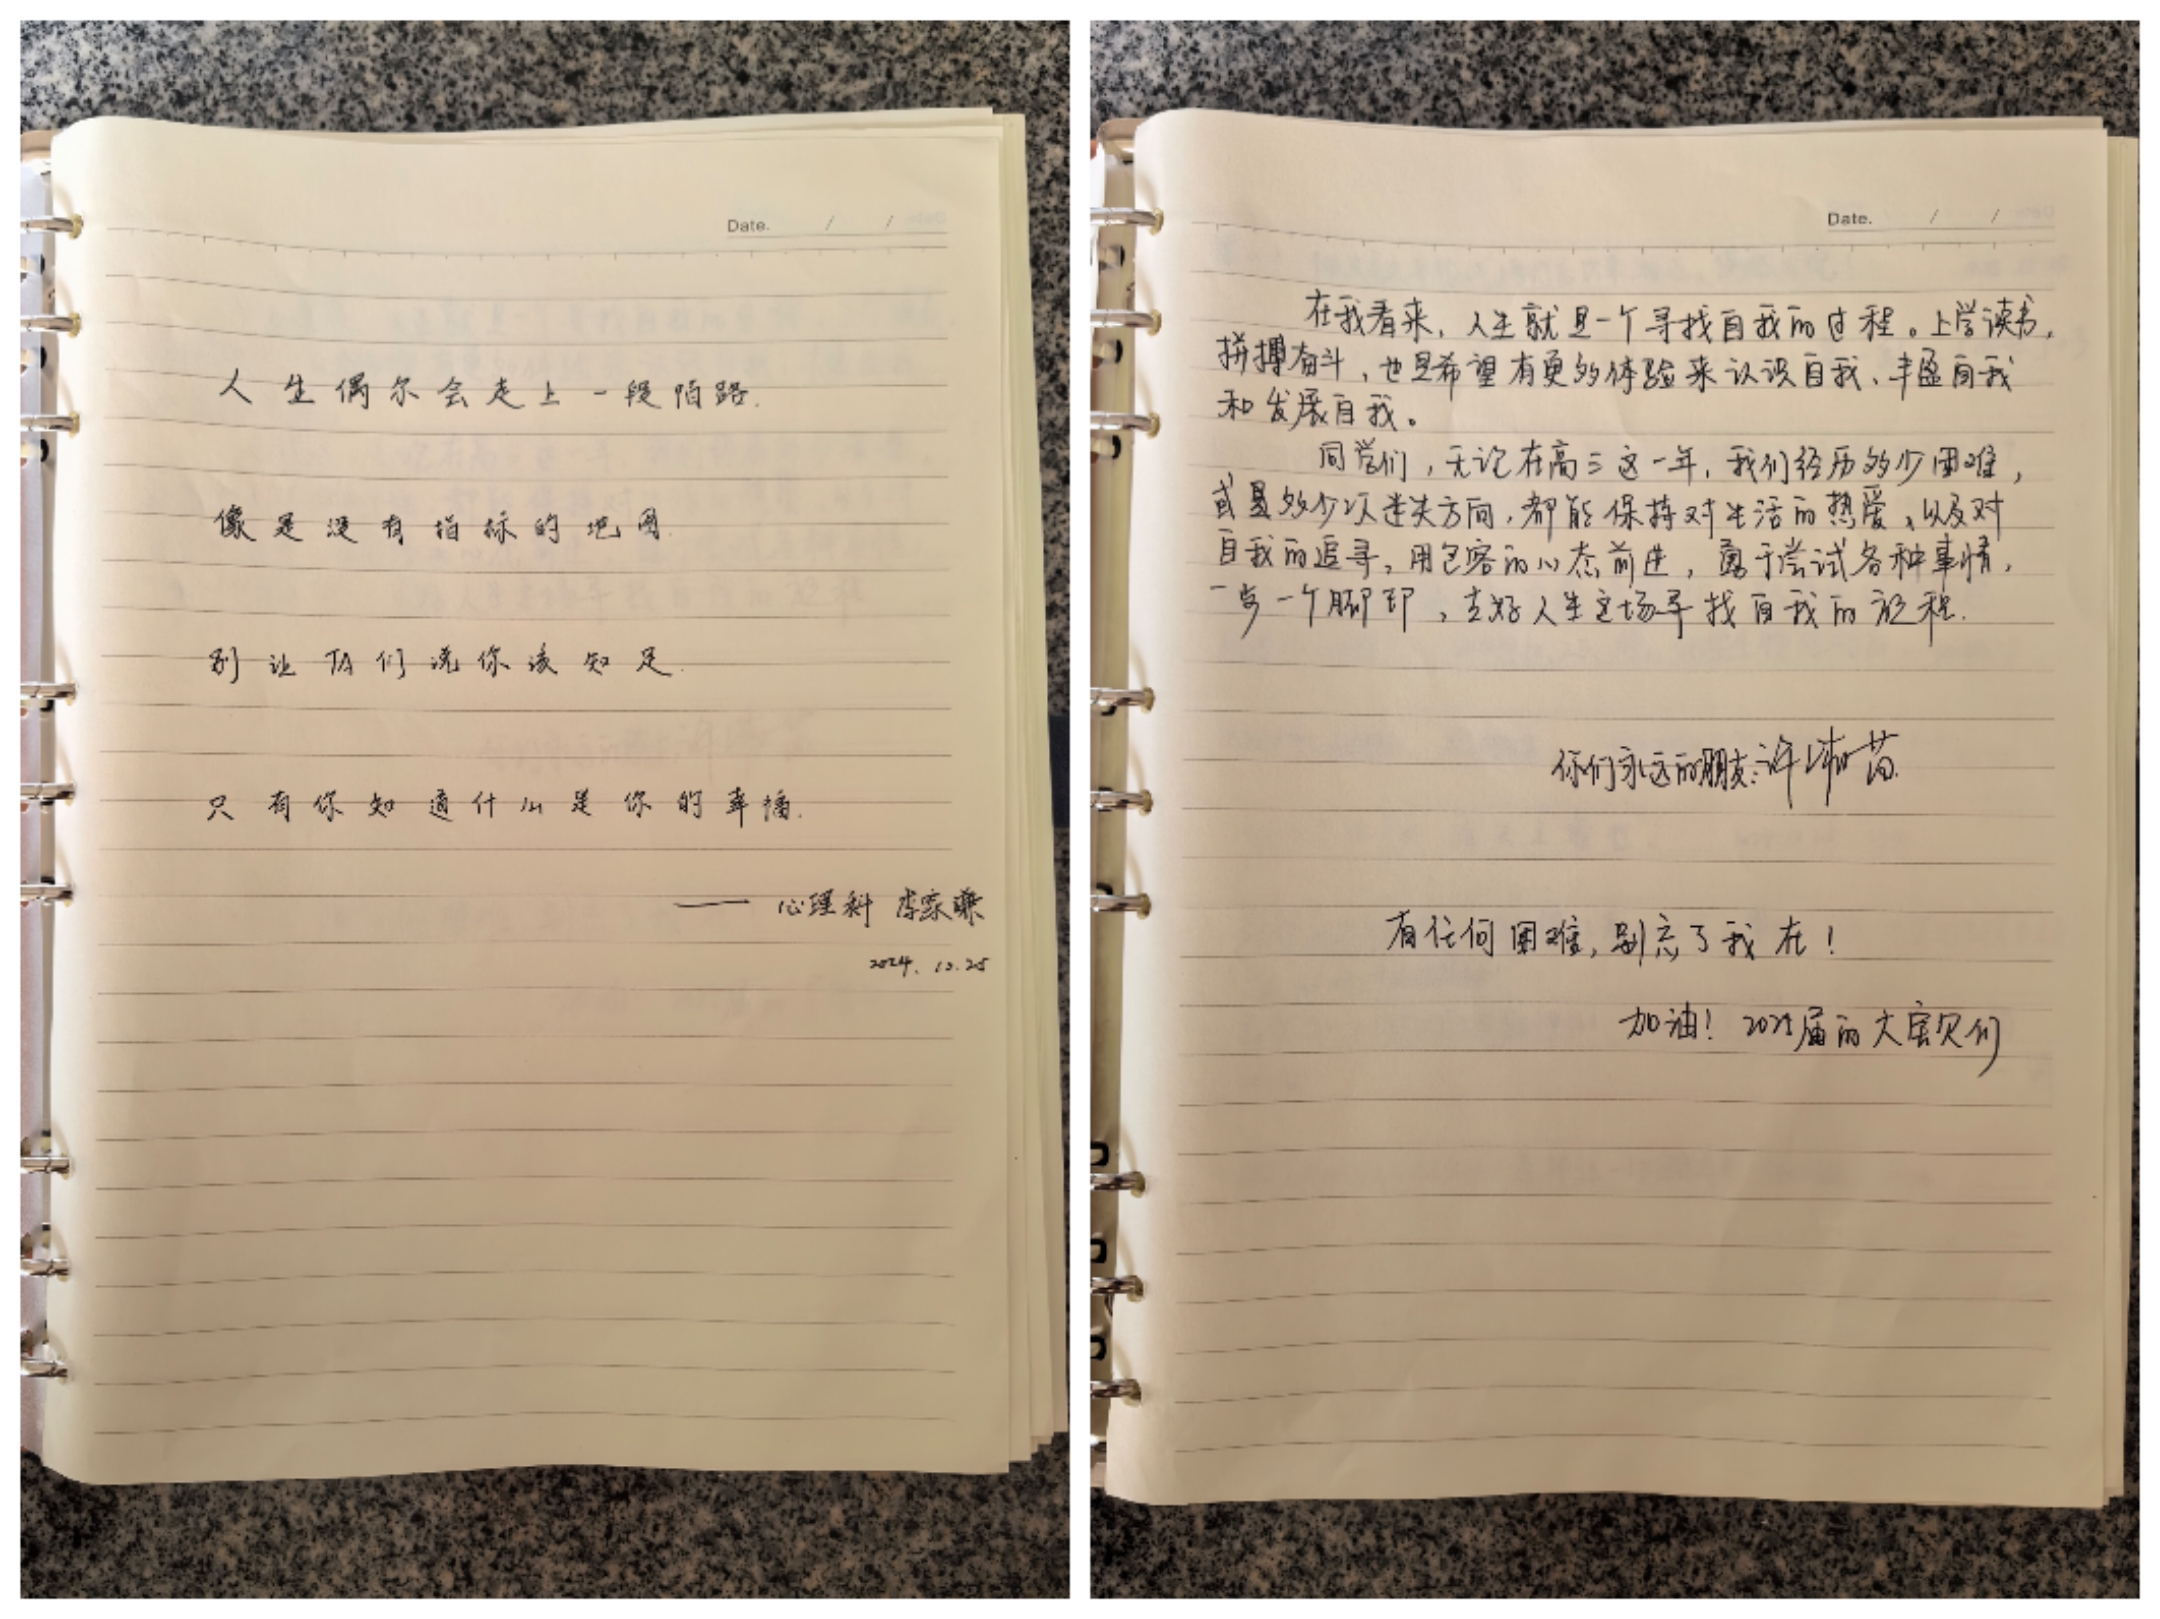 Date. / /
人生偶尔会走上一段陌路.
像是没有指标的地图.
别让TA们说你该知足.
只有你知道什么是你的幸福.
—— 心理科 李家
2024.10.25
Date. / /
在我看来，人生就是一个寻找自我的过程。上学读书，
拼搏奋斗，也是希望有更多体验来认识自我、丰盈自我
和发展自我。
同学们，无论在高三这一年，我们经历多少困难，
或是多少次迷失方向，都能保持对生活的热爱、以及对
自我的追寻，用包容的心态前进，勇于尝试各种事情，
一步一个脚印，走好人生这场寻找自我的旅程.
你们永远的朋友：许 苗
有任何困难，别忘了我在！
加油！2025届的大宝贝们